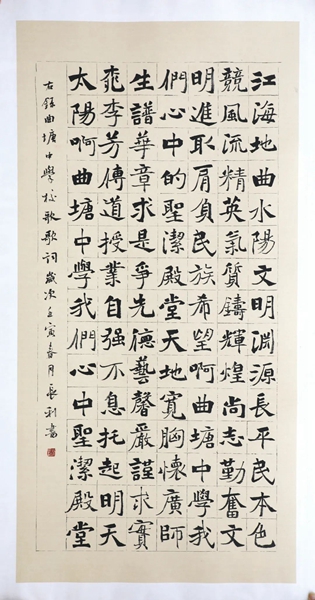 江海地曲水陽文明淵源長平民本色
競風流精英氣質鑄輝煌尚志勤奮文
明進取肩負民族希望啊曲塘中學我
們心中的聖潔殿堂天地寬胸懷廣師
生譜華章求是爭先德藝馨嚴謹求實
桃李芳傳道授業自强不息托起明天
太陽啊曲塘中學我們心中聖潔殿堂
古錄曲塘中學校歌歌詞歲次壬寅春月長利書